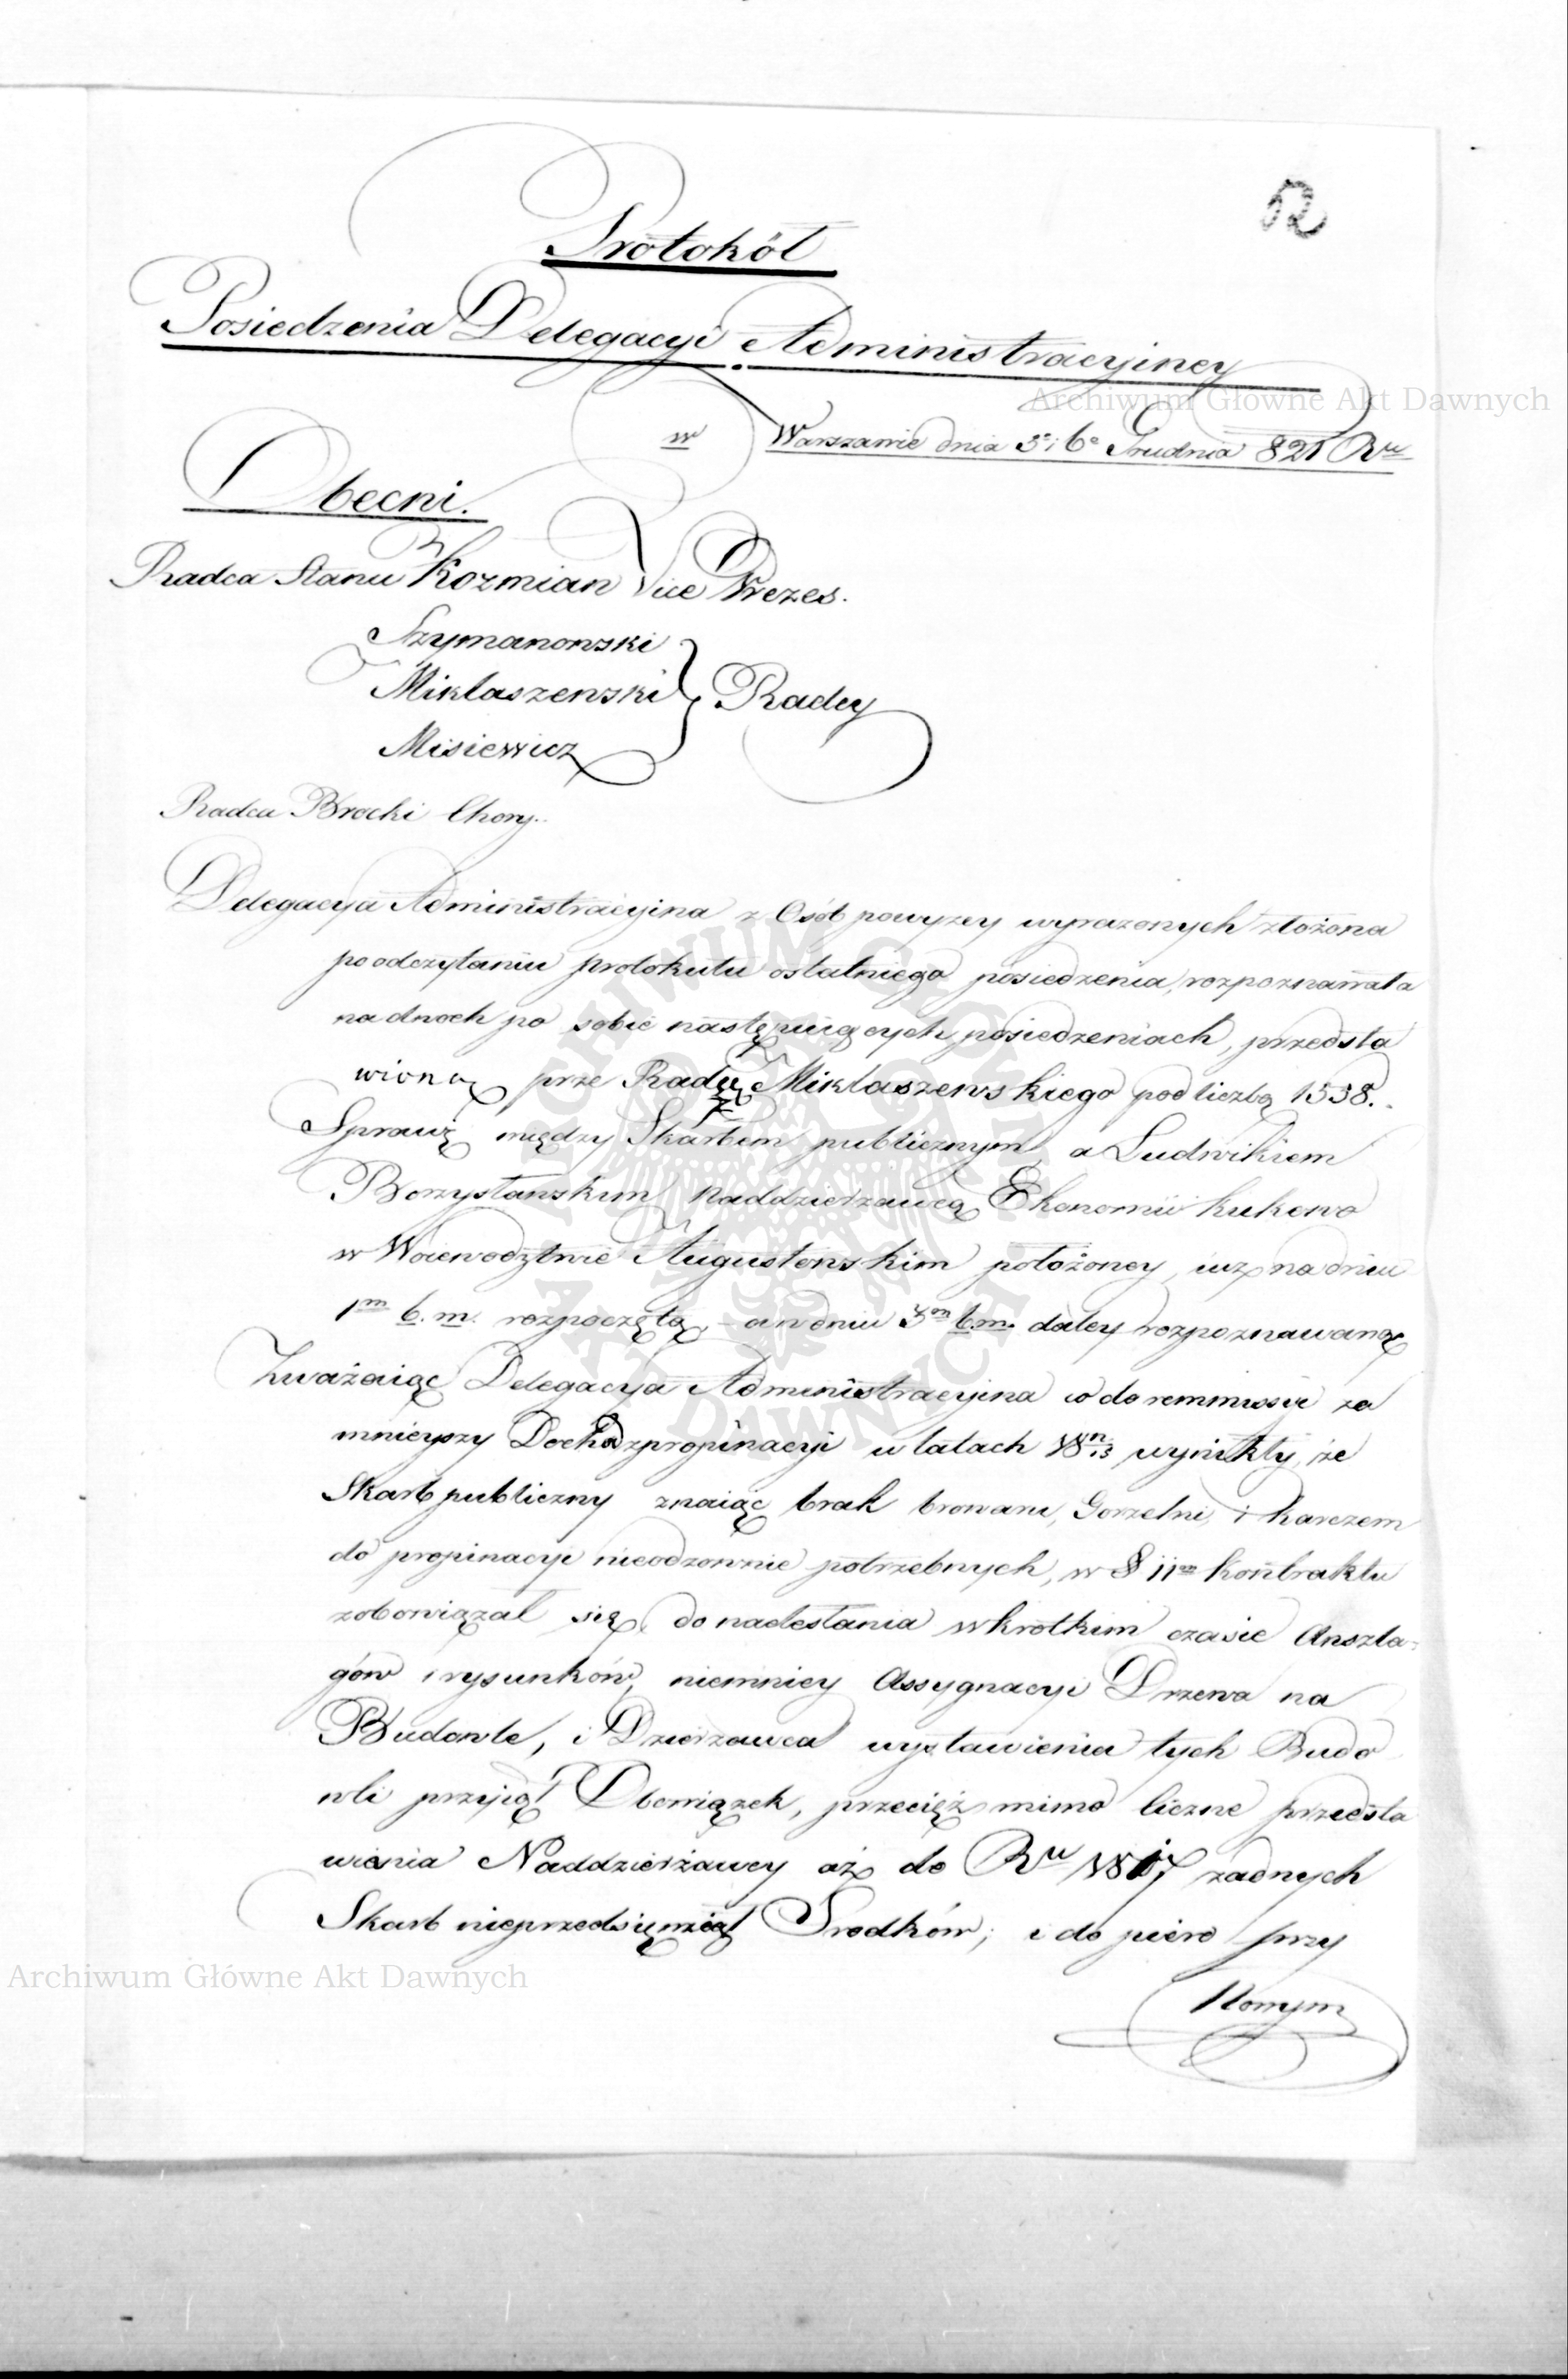 52
Protokół
Posiedzenia Delegacyi Administracyiney
w Warszawie dnia 3º i 6º Grudnia 821 Rᵘ
Obecni.
Radca Stanu Kozmian Vice Prezes.
Szymanowski
Miklaszewski } Radcy
Misiewicz
Radca Brocki Chory.
Delegacya Administracyina z Osób powyzey wyrazonych złożona
po odczytaniu protokułu ostatniego posiedzenia, rozpoznawała
na dwoch po sobie następuiących posiedzeniach, przedsta
wioną prze Radcę Miklaszewskiego pod liczbą 1538.
Sprawę między Skarbem publicznym, a Ludwikiem
Borzysławskim Naddzierżawcą Ekonomii Kukowo
w Woiewodztwie Augustowskim położoney, iuż na dniu
1ᵐ b. m. rozpoczętą, a w dniu 3ᵐ b. m. daley rozpoznawaną
Zważaiąc Delegacya Administracyina co do remmissyi za
mnieyszy Dochod z propinacyi w latach 18 13 wynikły, że
Skarb publiczny znaiąc brak browaru, Gorzelni i karczem
do propinacyi nieodzownie potrzebnych, w § 11ᵐ Kontraktu
zobowiązał się, do nadesłania w krotkim czasie Anszla-
gów i rysunków, niemniey Assygnacyi Drzewa na
Budowle, i Dzierzawca wystawienia tych Budo
wli przyjął Obowiązek, przecięż mimo liczne przedsta
wienia Naddzierżawcy aż do Rᵘ 1817 żadnych
Skarb nieprzedsięwziął Srodków; i do piero przy
Nowym
Archiwum Główne Akt Dawnych
Archiwum Główne Akt Dawnych
ARCHIWUM GŁÓWNE
AKT DAWNYCH